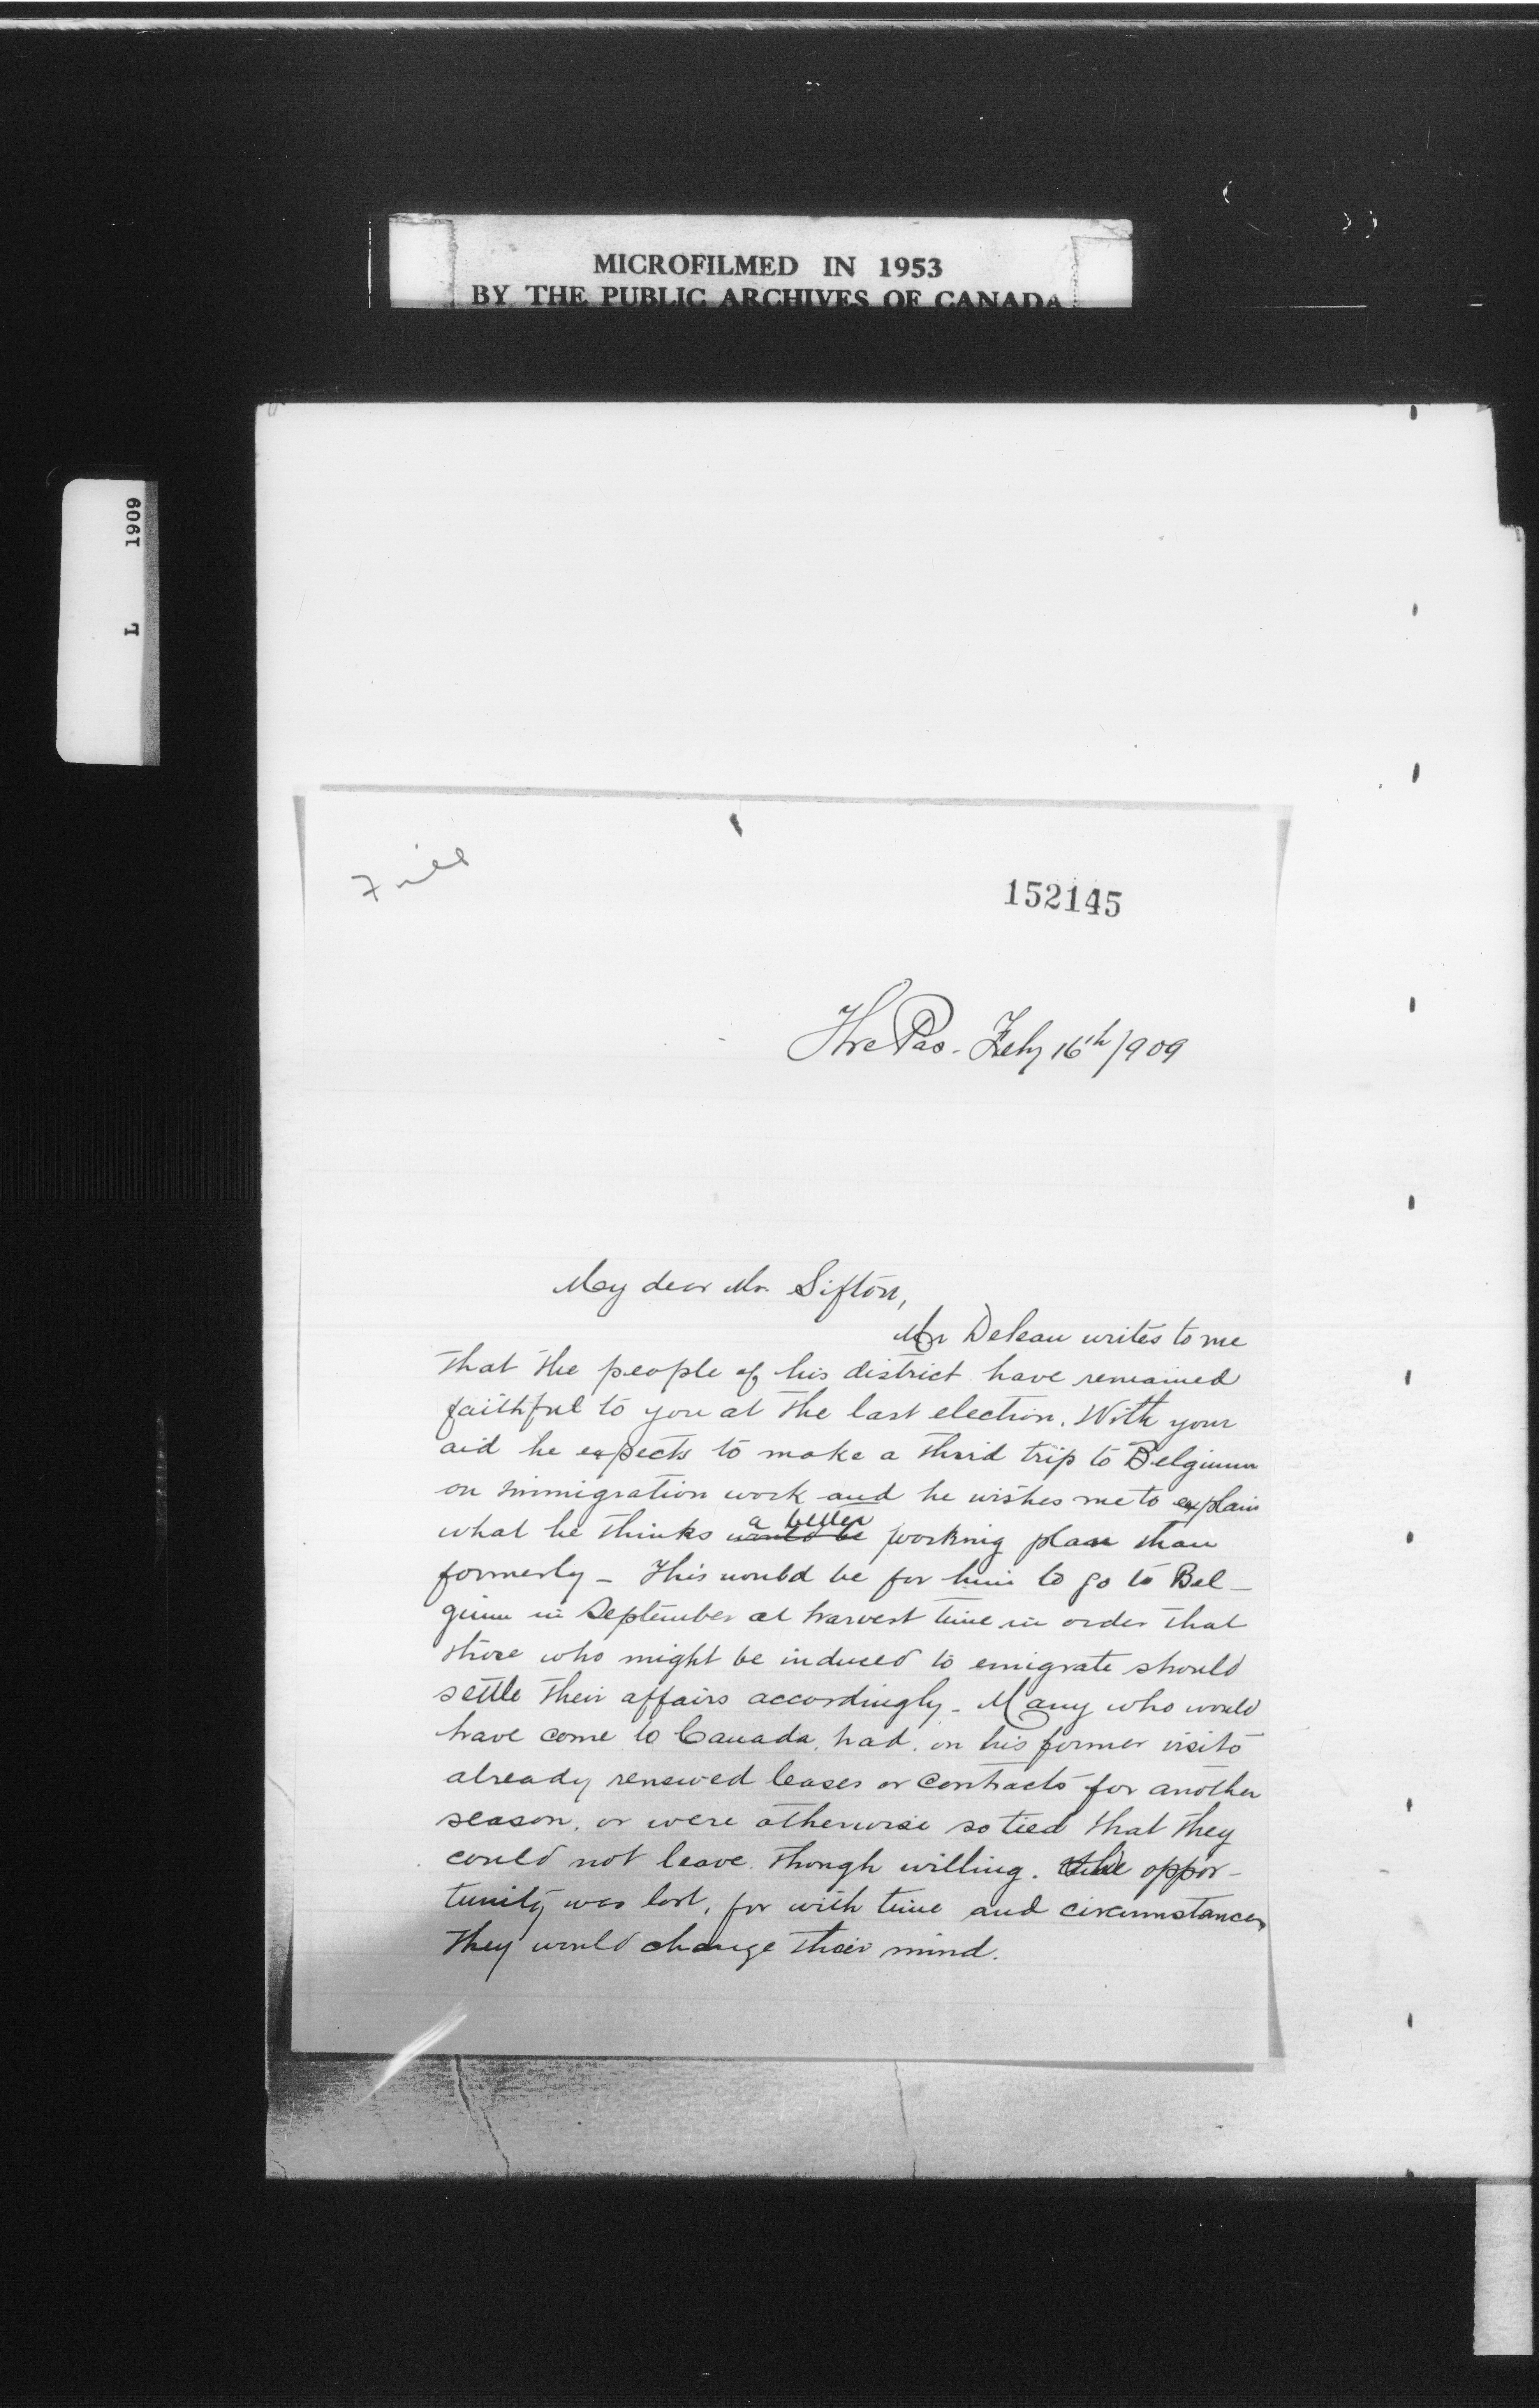 MICROFILMED IN 1953
BY THE PUBLIC ARCHIVES OF CANADA
1909
L
File
152145
The Pas. Feby 16th/909
My dear Mr. Sifton,
Mr Deleau writes to me
that the people of his district have remained
faithful to you at the last election. With your
aid he expects to make a third trip to Belgium
on immigration work and he wishes me to explain
a better
what he thinks would be working plan than
formerly - This would be for him to go to Bel-
gium in September at harvest time in order that
those who might be induced to emigrate should
settle their affairs accordingly - Many who would
have come to Canada, had, on his former visits
already renewed leases or contracts for another
season, or were otherwise so tied that they
could not leave though willing. The oppor-
tunity was lost, for with time and circumstances
they would change their mind.